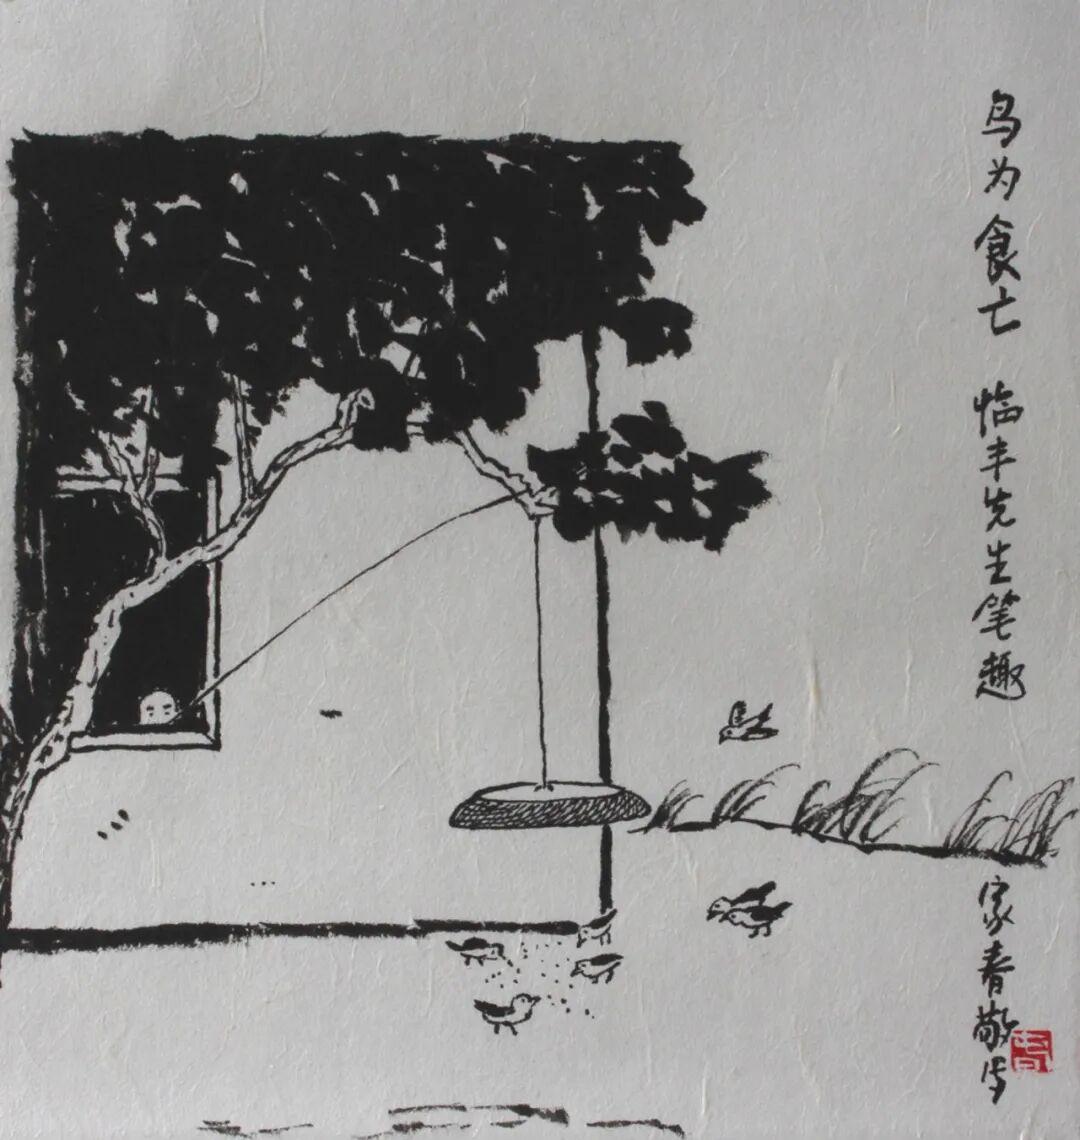 鸟为食亡 临丰先生笔趣
家春敬写